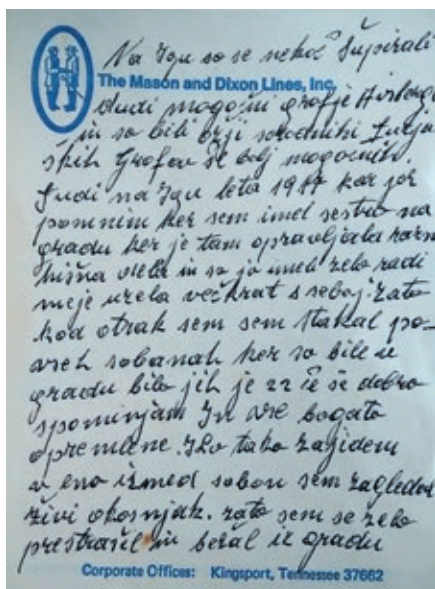 Na Igu so se nekoč šopirali
The Mason and Dixon Lines, Inc.
tudi mogočni grofje
in so bili
skih Grofov še bolj mogočnih.
Tudi na Igu leta kar jez
pomnim ker sem imel sestro na
gradu ker je tam opravljala razna
hišna dela in so jo imeli zelo radi
me je uzela večkrat s seboj. zato
kod otrak sem sem stakal po-
vseh sobanah ker so bile u
gradu bilo jih je 22 če se dobro
spominjam In vse bogato
opremlene. Ko tako zajidem
v eno izmed soban sem zagledal
živi okosnjak. zato sem se zelo
prestrašil in bežal iz gradu
Corporate Offices: Kingsport, Tennessee 37662